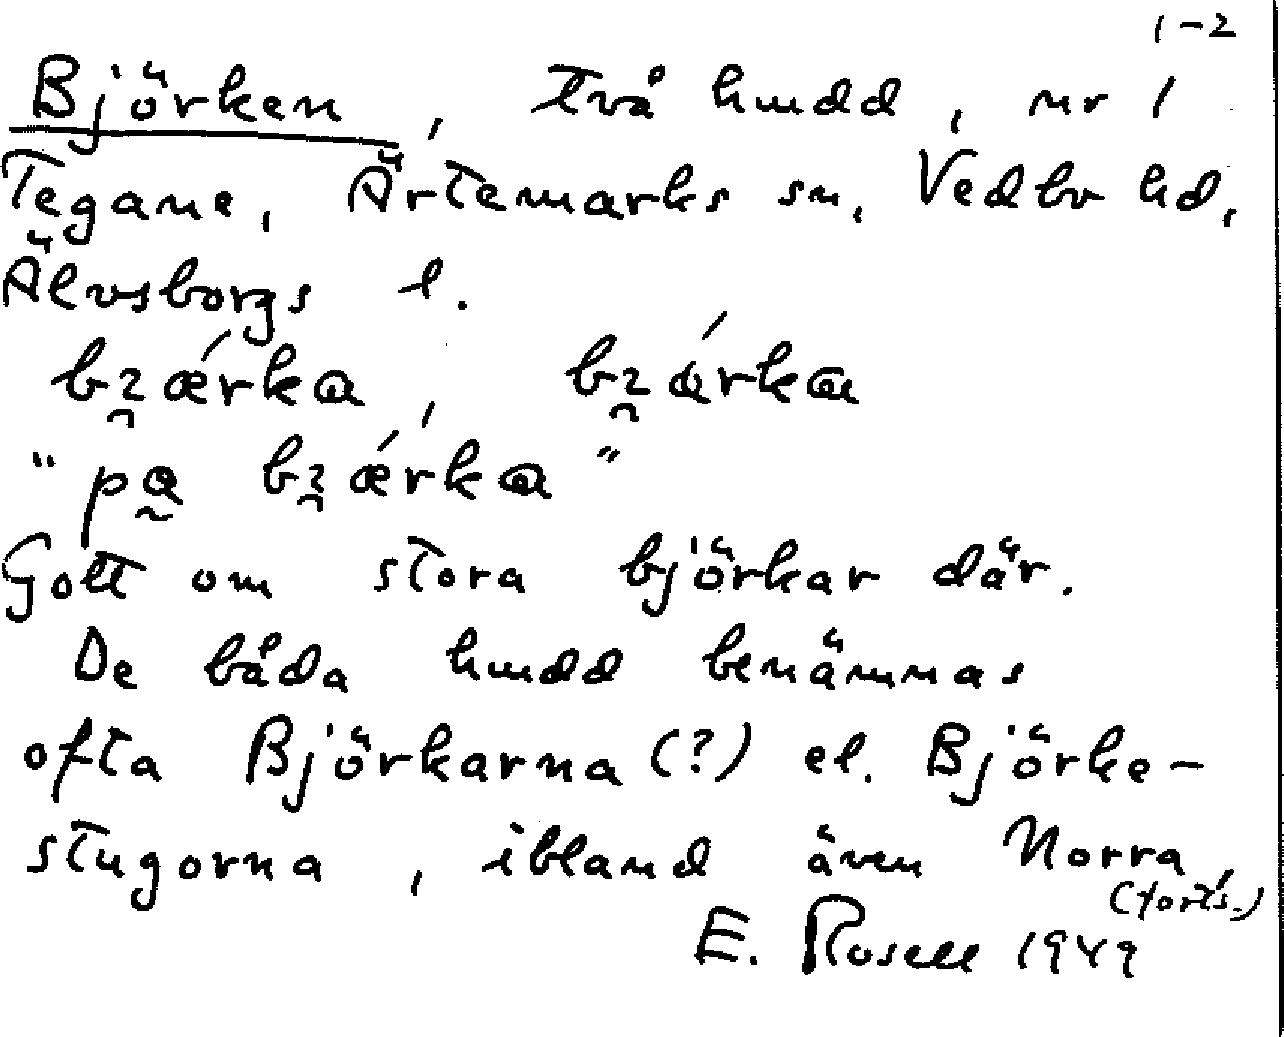 1-2
Björken, två hmdd, nr 1
Tegane, Ärtemarks sn, Vedbo hd,
Älvsborgs l.
"pa
Gott om stora björkar där.
De båda hmdd benämnas
ofta Björkarna (?) el. Björke-
stugorna, ibland även Norra,
(forts.)
E. Rosell 1949